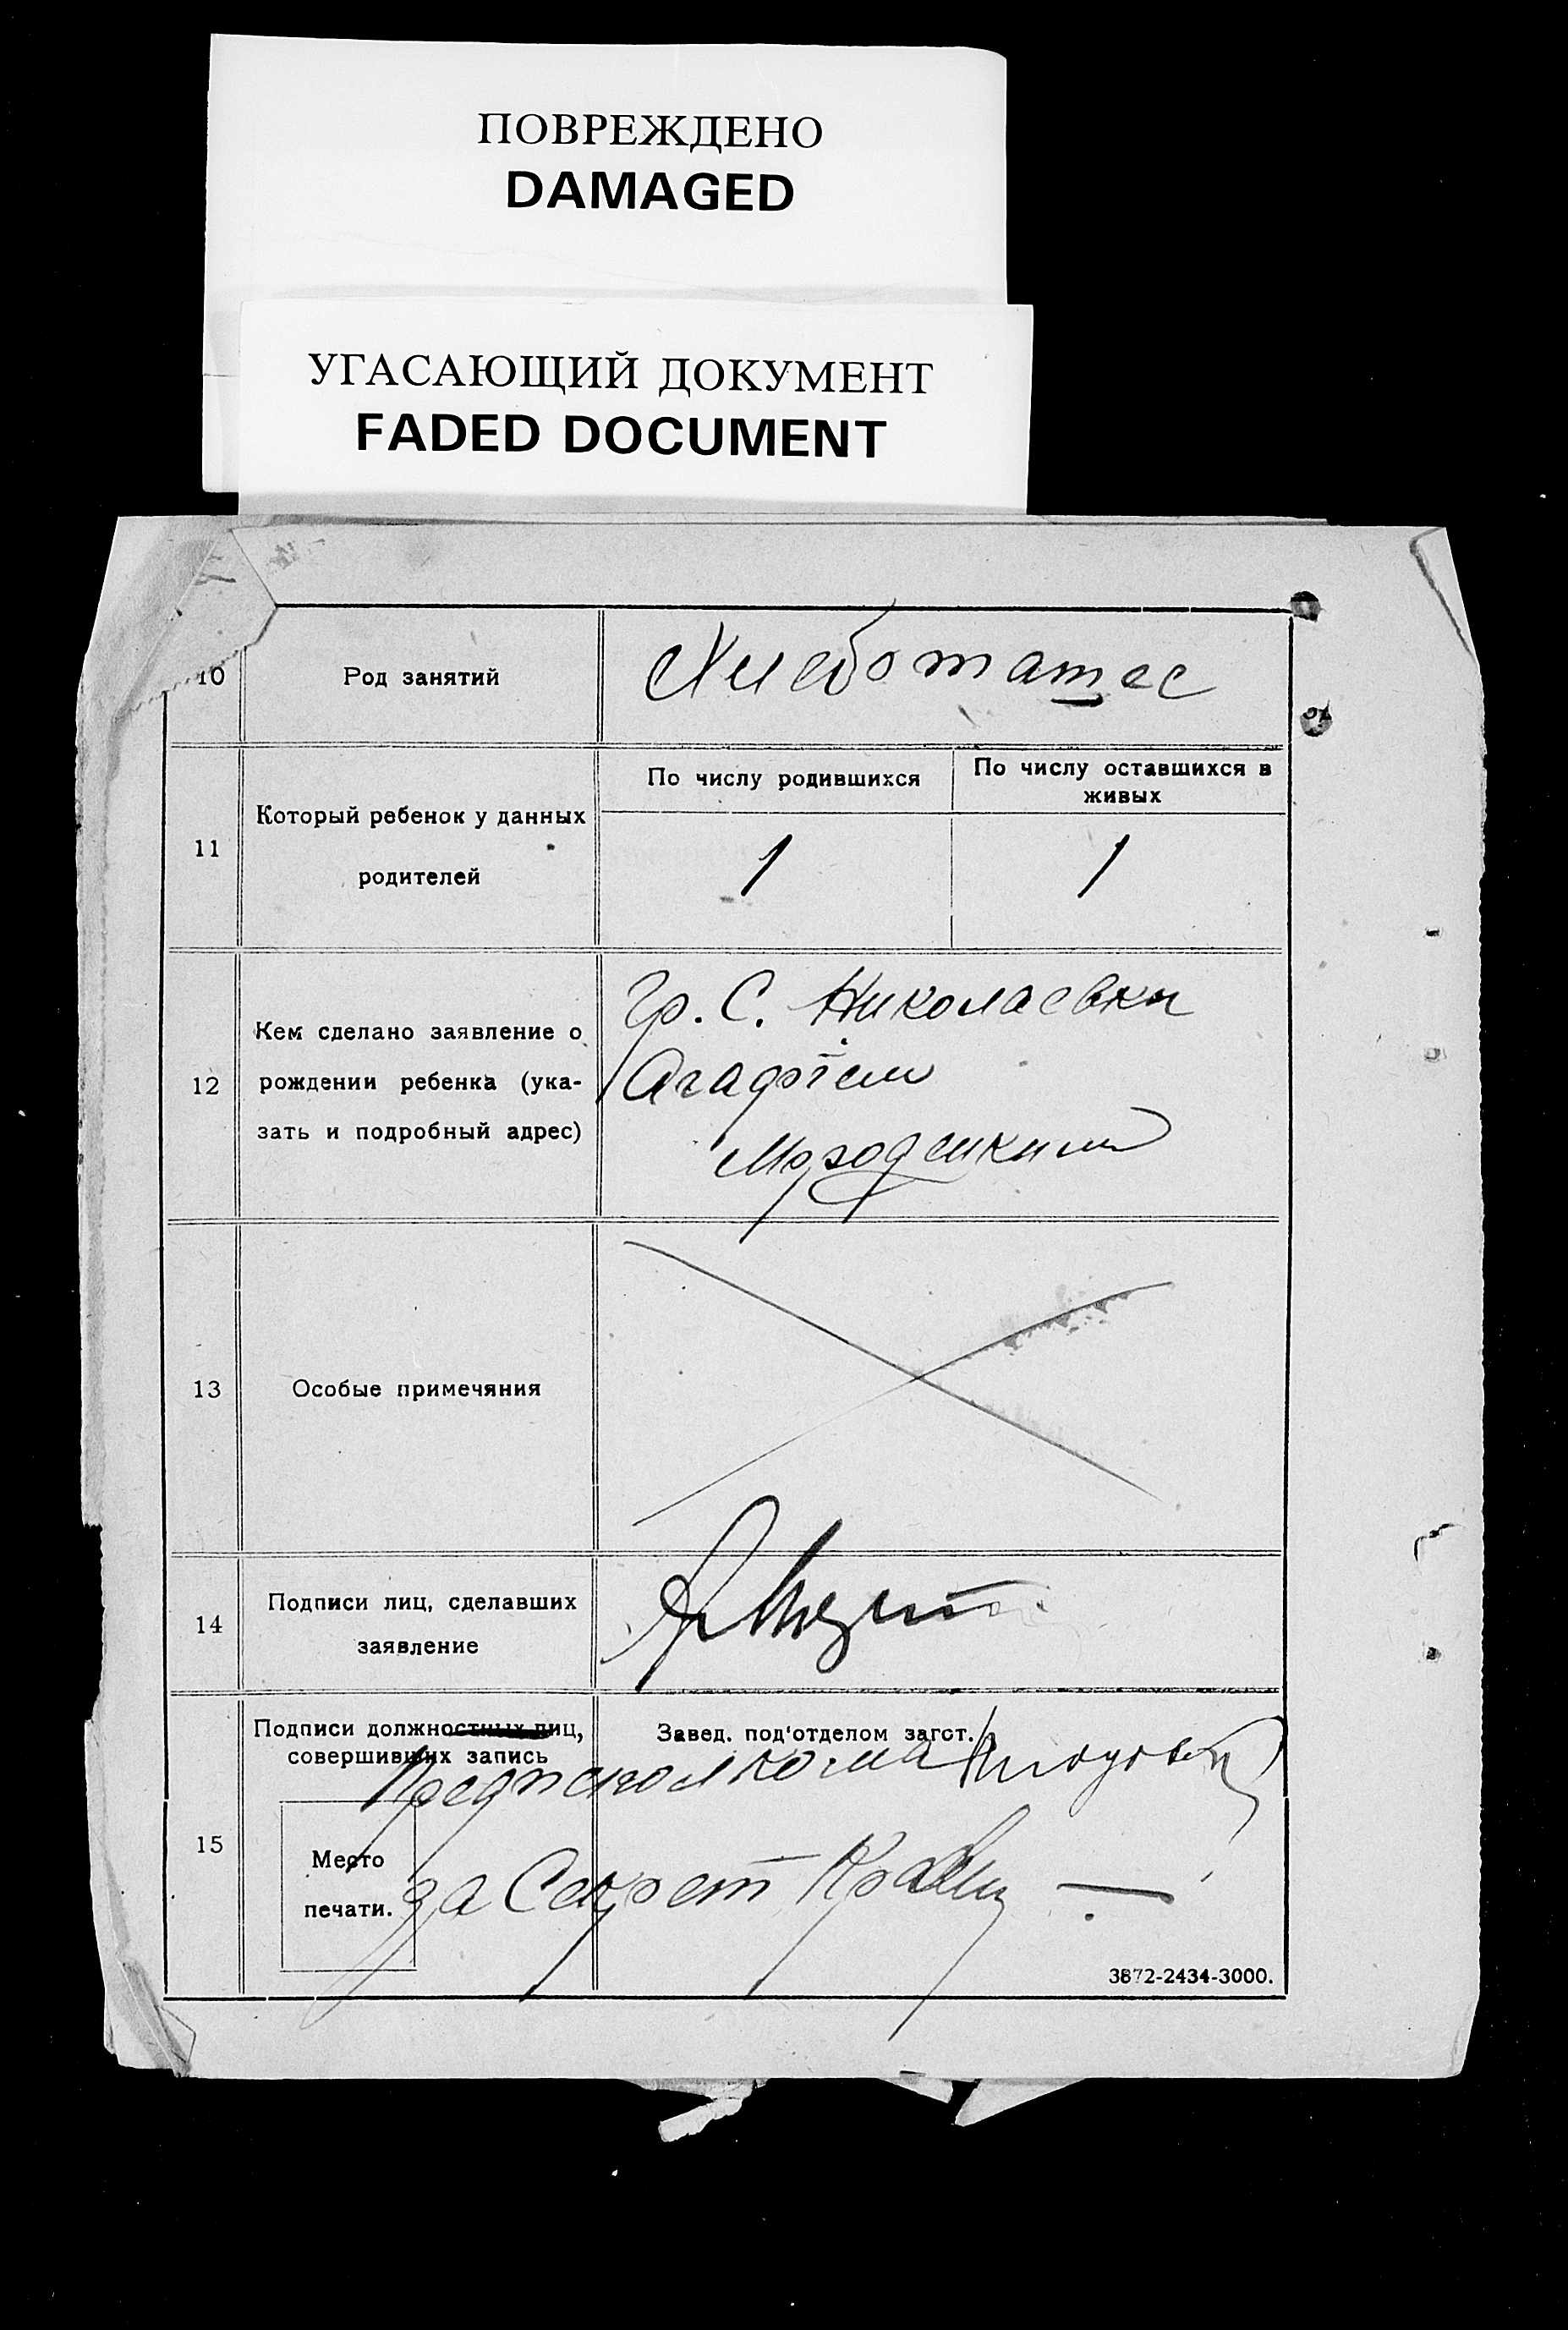 ПОВРЕЖДЕНО
DAMAGED
УГАСАЮЩИЙ ДОКУМЕНТ
FADED DOCUMENT
10
Род занятий
11
Который ребенок у данных
родителей
По числу родившихся
По числу оставшихся в
живых
1
1
12
Кем сделано заявление о
рождении ребенка (ука-
зать и подробный адрес)
Гр. С. Николаевки
13
Особые примечяния
14
Подписи лиц, сделавших
заявление
15
Подписи должностных лиц,
совершивших запись
Завед. под'отделом загст.
Место
печати.
за Секрет
3872-2434-3000.